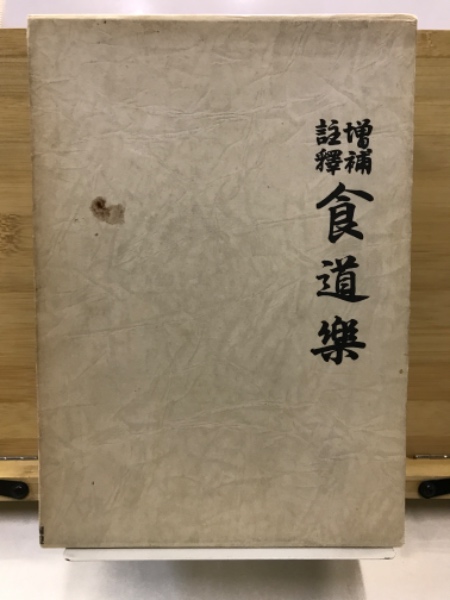 增補
註釋
食道樂